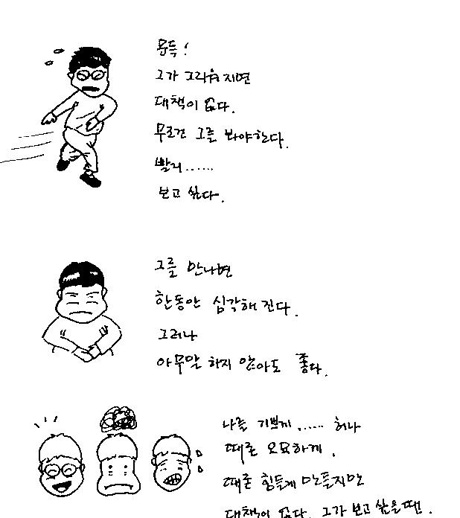 문득!
그가 그리워지면
대책이 없다.
무조건 그를 봐야한다.
빨리......
보고 싶다.
그를 만나면
한동안 심각해 진다.
그러나
아무말 하지 않아도 좋다.
나를 기쁘게, ...... 허나
때론 오묘하게,
때론 힘들게 만들지만
대책이 없다. 그가 보고 싶을땐.